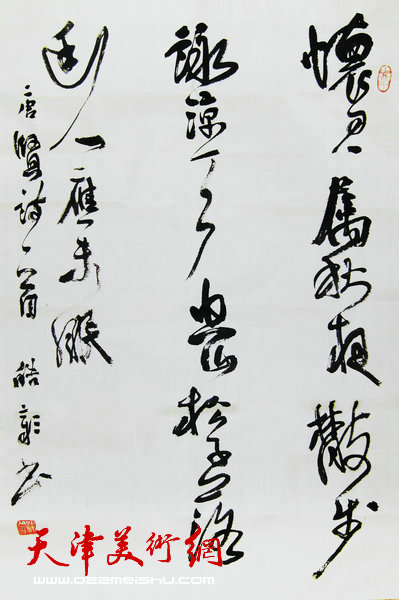 懷君屬秋夜散步
詠涼天空山松子落
幽人應未眠
唐賢詩一首 書
天津美術網
www.022meishu.com